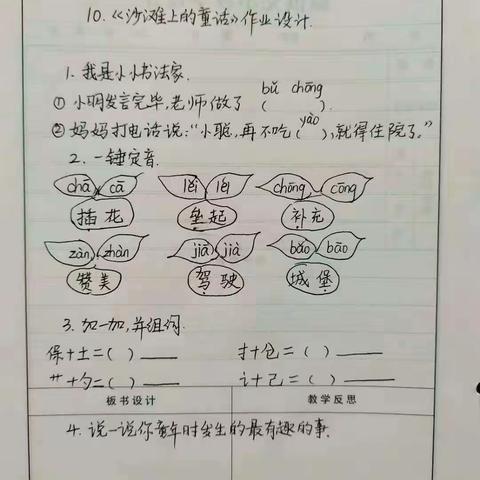 10.《沙滩上的童话》作业设计.
1. 我是小小书法家.
bǔ chōng
① 小明发言完毕,老师做了 ( ).
yào
② 妈妈打电话说:“小聪,再不吃( ),就得住院了。”
2. 一锤定音.
chā cā lěi lěi chōng cōng
插花 垒起 补充
zàn zhàn jiā jià bǎo bāo
赞美 驾驶 城堡
3. 加一加,并组词.
保+土=( ) 扌+仓=( )
艹+勺=( ) 讠+己=( )
板书设计 教学反思
4. 说一说你童年时发生的最有趣的事.